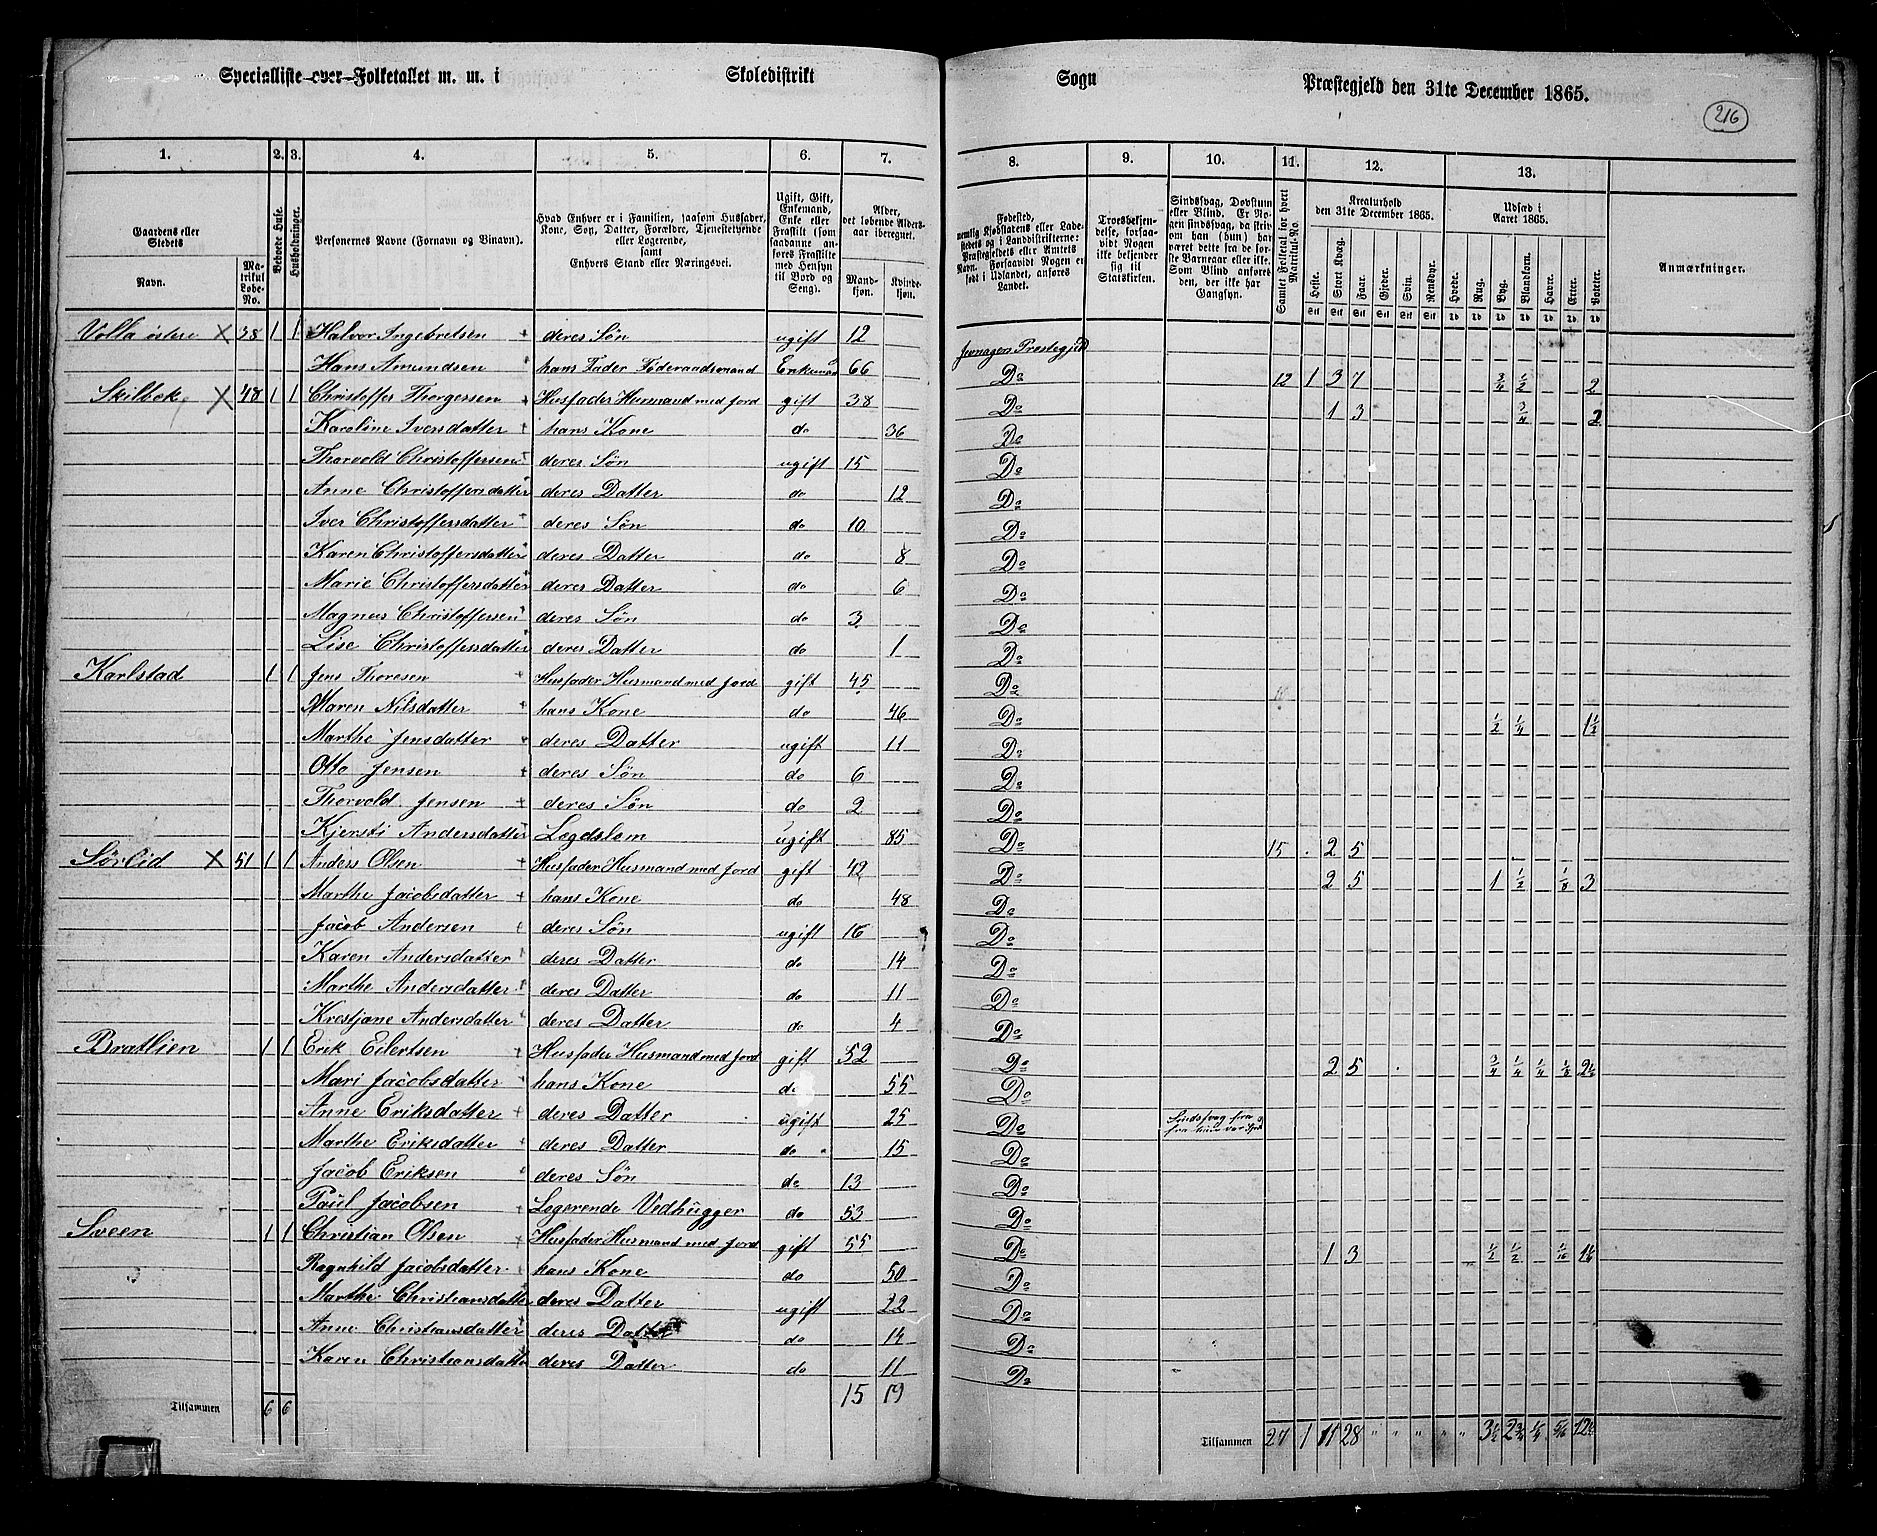 Specialliste over Folketallet m. m. i Skoledistrikt Sogn Præstegjeld den 31te December 1865.
216
1. 2. 3. 4. 5. 6. 7. 8. 9. 10. 11. 12. 13.
Gaardens eller Stedets
Navn.
Matrikul Løbe-No.
Beboede Huse.
Husholdninger.
Personernes Navne (Fornavn og Vinavn).
Hvad Enhver er i Familien, saasom Husfader, Kone, Søn, Datter, Forældre, Tjenestetyende eller Logerende, samt Enhvers Stand eller Næringsvei.
Ugift, Gift, Enkemand, Enke eller Fraskilt (som saadanne anføres Fraskilte med Hensyn til Bord og Seng).
Alder, det løbende Aldersaar iberegnet.
Mandkjøn. Kvindekjøn.
Fødested, nemlig Kjøbstadens eller Ladestedets og i Landdistrikterne: Præstegjeldets eller Amtets Navn. Forsaavidt Nogen er født i Udlandet, anføres Landet.
Troesbekjendelse, forsaavidt Nogen ikke bekjender sig til Statskirken.
Sindssvag, Døvstum eller Blind. Er Nogen sindssvag, da skrives om han (hun) har været dette fra de første Barneaar eller ikke. Som Blind anføres den, der ikke har Gangsyn.
Samlet Folketal for hvert Matrikul-No.
Kreaturhold den 31te December 1865.
Heste. Stort Kvæg. Faar. Gjeder. Svin. Rensdyr.
Udsæd i Aaret 1865.
Hvede. Rug. Byg. Blandkorn. Havre. Erter. Poteter.
Anmærkninger.
Volla östere X 38 1 1 Halvor Ingebretsen deres Søn ugift 12 Jevnager Præstegjeld
Hans Amundsen hans Fader Föderaadsmand Enkemand 66 Do 12 1 3 7 3/4 1/2 2
Skilbek X 48 1 1 Christoffer Thorgersen Husfader Husmand med Jord gift 38 Do 1 3 3/4 2
Karoline Iversdatter hans Kone do 36 Do
Thorvold Christoffersen deres Søn ugift 15 Do
Anne Christoffersdatter deres Datter do 12 Do
Iver Christoffersdatter deres Søn do 10 Do
Karen Christoffersdatter deres Datter do 8 Do
Marie Christoffersdatter deres Datter do 6 Do
Magnus Christoffersen deres Søn do 3 Do
Lise Christoffersdatter deres Datter do 1 Do
Karlstad 1 1 Jens Thoresen Husfader Husmand med Jord gift 45 Do
Maren Nilsdatter hans Kone do 46 Do 1/2 1/4 1 1/2
Marthe Jensdatter deres Datter ugift 11 Do
Otto Jensen deres Søn do 6 Do
Thorvold Jensen deres Søn do 2 Do
Kjersti Andersdatter Lægdslem ugift 85 Do 15 2 5
Sørlid X 51 1 1 Anders Olsen Husfader Husmand med Jord gift 42 Do 2 5 1 1/2 1/8 3
Marthe Jacobsdatter hans Kone do 48 Do
Jacob Andersen deres Søn ugift 16 Do
Karen Andersdatter deres Datter do 14 Do
Marthe Andersdatter deres Datter do 11 Do
Krestjane Andersdatter deres Datter do 4 Do
Bratlien 1 1 Erik Eilertsen Husfader Husmand med Jord gift 52 Do 2 5 3/4 1/4 1/4 1/8 2 1/2
Mari Jacobsdatter hans Kone do 55 Do
Anne Eriksdatter deres Datter ugift 25 Do Sindssvag fra
Marthe Eriksdatter deres Datter do 15 Do
Jacob Eriksen deres Søn do 13 Do
Paul Jacobsen Logerende Vedhugger do 53 Do
Sveen 1 1 Christian Olsen Husfader Husmand med Jord gift 55 Do 1 3 1/2 1/2 1/16
Ragnhild Jacobsdatter hans Kone do 50 Do
Marthe Christiansdatter deres Datter ugift 22 Do
Anne Christiansdatter deres Datter do 14 Do
Karen Christiansdatter deres Datter do 11 Do
15 19
Tilsammen 6 6
Tilsammen 27 1 11 28 " " " " " 3 1/2 2 3/4 1/4 5/16